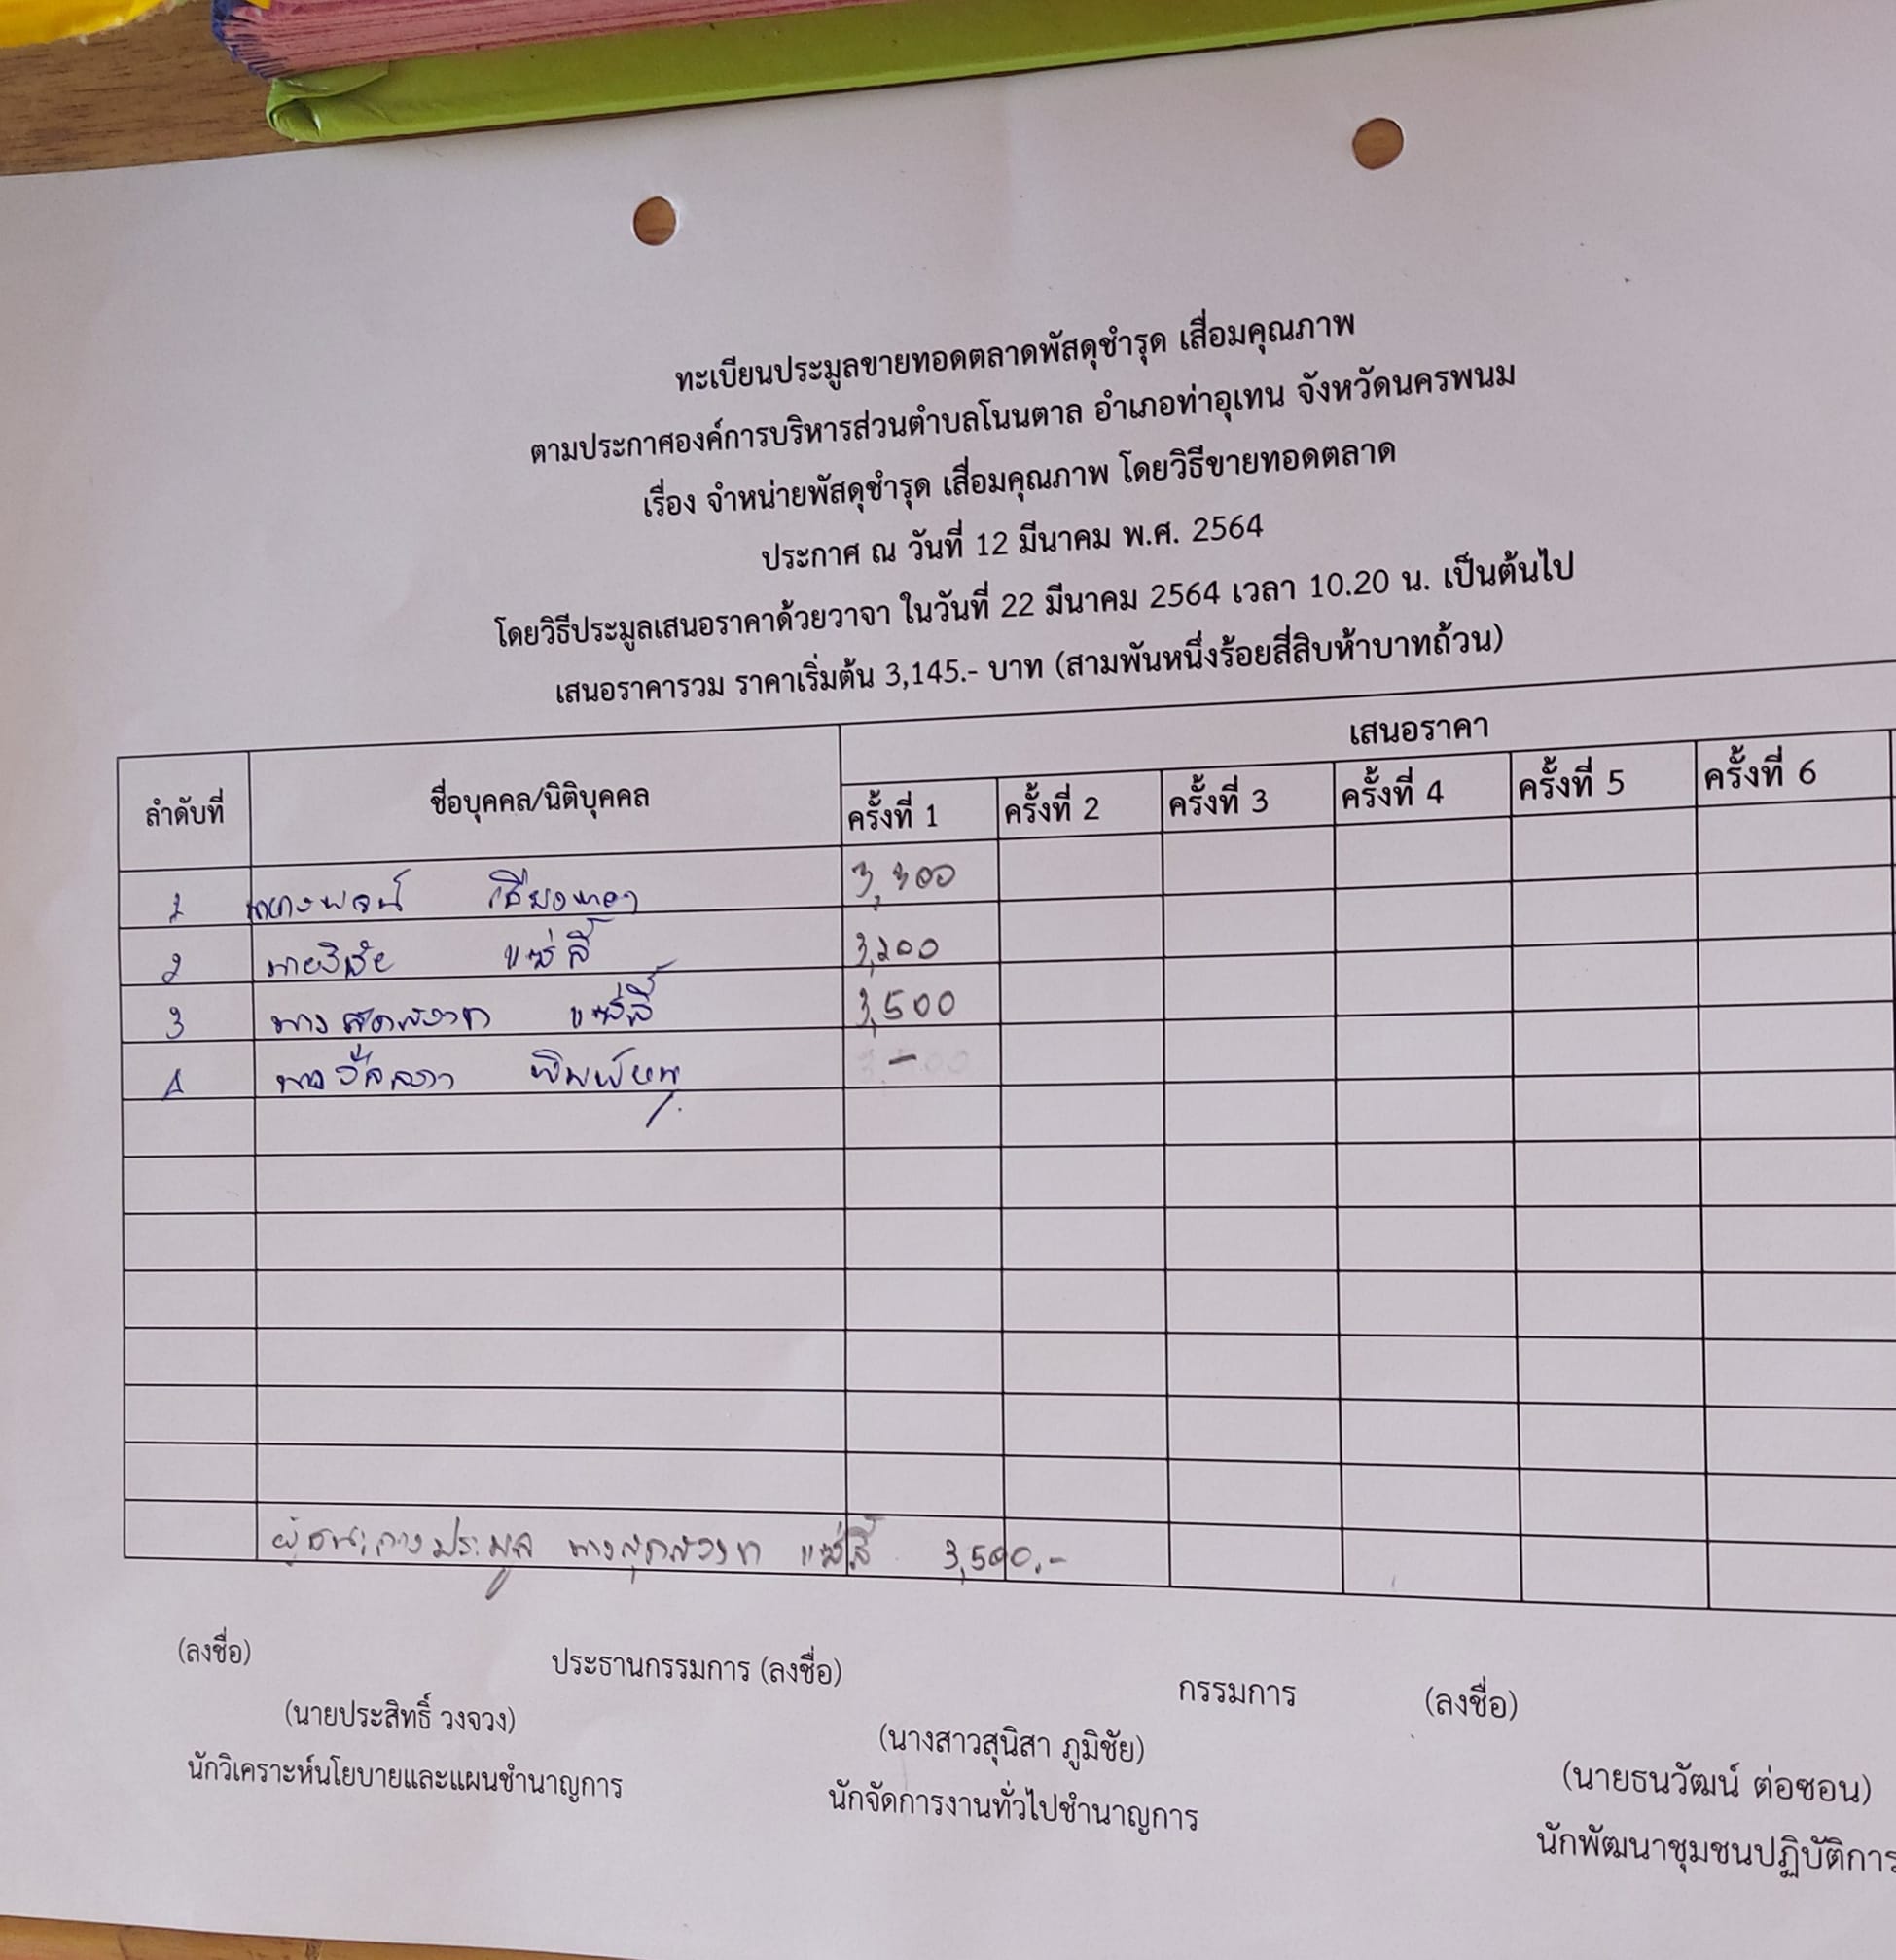 ทะเบียนประมูลขายทอดตลาดพัสดุชำรุด เสื่อมคุณภาพ
ตามประกาศองค์การบริหารส่วนตำบลโนนตาล อำเภอท่าอุเทน จังหวัดนครพนม
เรื่อง จำหน่ายพัสดุชำรุด เสื่อมคุณภาพ โดยวิธีขายทอดตลาด
ประกาศ ณ วันที่ 12 มีนาคม พ.ศ. 2564
โดยวิธีประมูลเสนอราคาด้วยวาจา ในวันที่ 22 มีนาคม 2564 เวลา 10.20 น. เป็นต้นไป
เสนอราคารวม ราคาเริ่มต้น 3,145.- บาท (สามพันหนึ่งร้อยสี่สิบห้าบาทถ้วน)
ลำดับที่ ชื่อบุคคล/นิติบุคคล เสนอราคา
ครั้งที่ 1 ครั้งที่ 2 ครั้งที่ 3 ครั้งที่ 4 ครั้งที่ 5 ครั้งที่ 6
1 3,300
2 นายวิชัย แซ่ลี้ 3,200
3 นาง แซ่ลี้ 3,500
4 -
ผู้ชนะการประมูล นาง แซ่ลี้ 3,500.-
(ลงชื่อ) ประธานกรรมการ (ลงชื่อ) กรรมการ (ลงชื่อ)
(นายประสิทธิ์ วงจวง) (นางสาวสุนิสา ภูมิชัย) (นายธนวัฒน์ ต่อชอน)
นักวิเคราะห์นโยบายและแผนชำนาญการ นักจัดการงานทั่วไปชำนาญการ นักพัฒนาชุมชนปฏิบัติการ